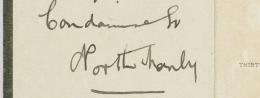 Condamine St
North Manly
THIRT